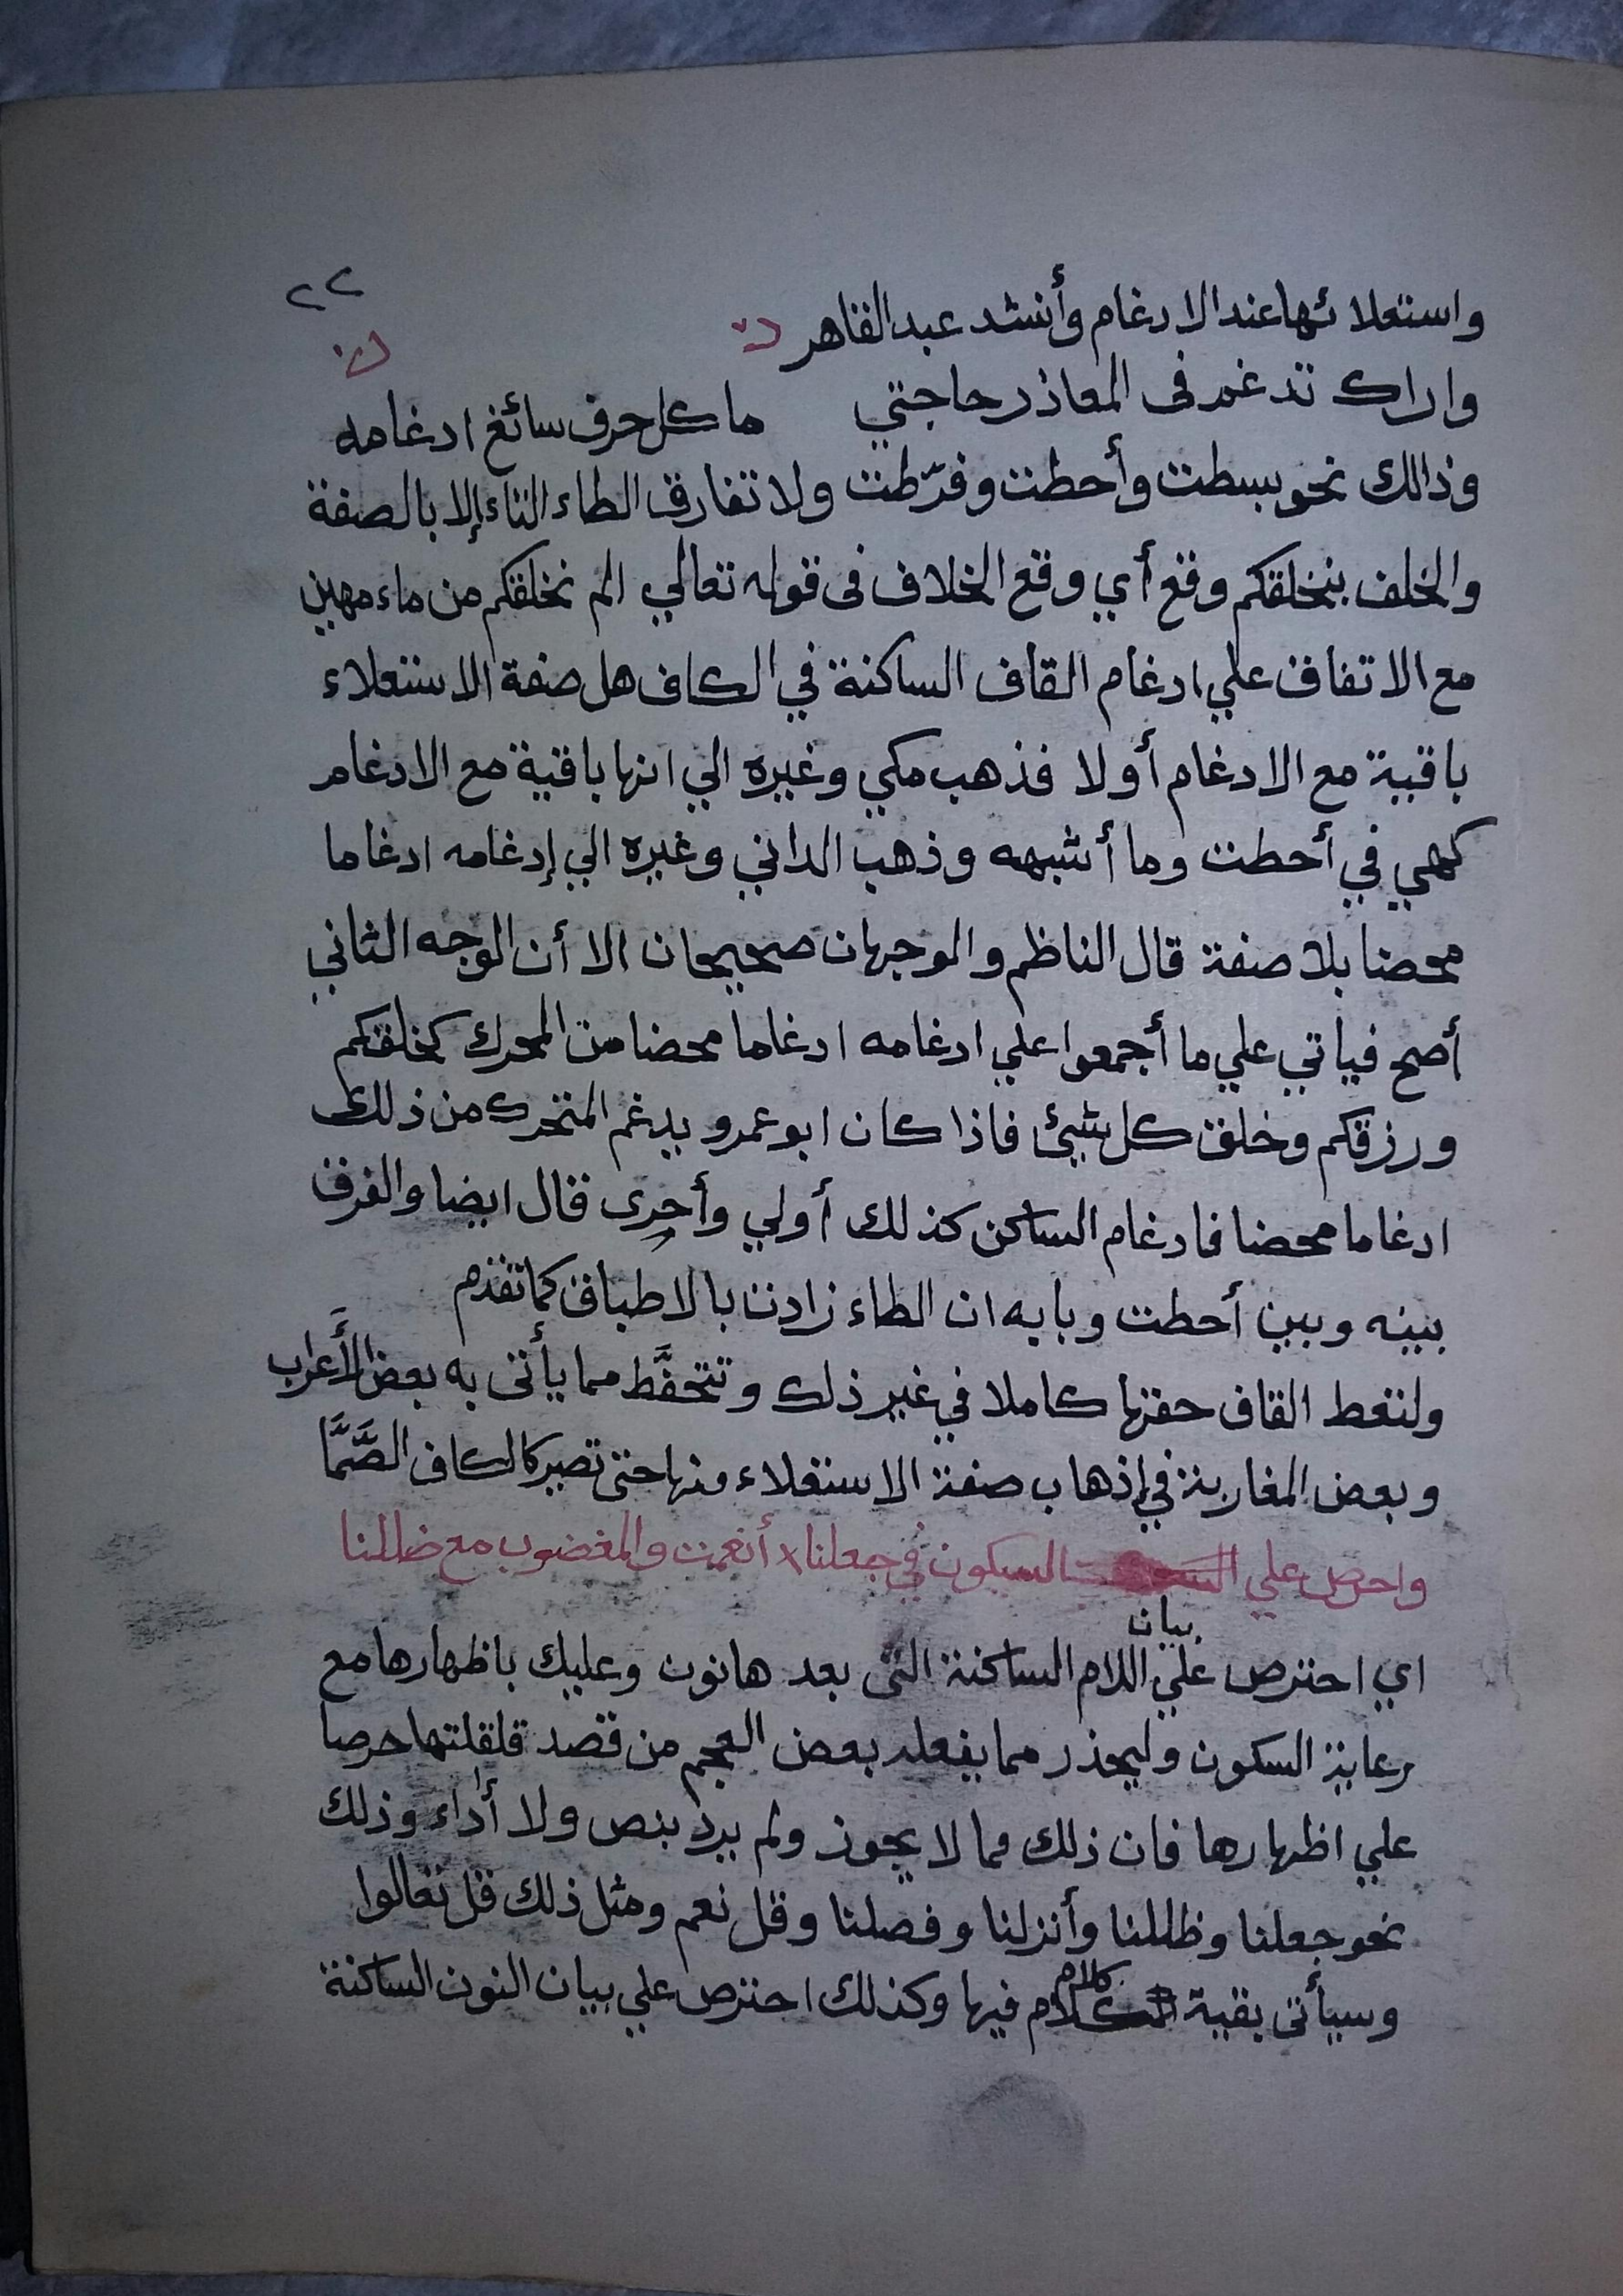 ٢٢
واستعلائها عند الادغام وأنشد عبد القاهر
واراك تدغم في المعاذر حاجتي ما كل حرف سائغ ادغامه
وذالك نحو بسطت وأحطت وفرّطت ولا تفارق الطاء التاء إلا بالصفة
والخلف بنخلقكم وقع أي وقع الخلاف في قوله تعالي الم نخلقكم من ماء مهين
مع الاتفاق علي ادغام القاف الساكنة في الكاف هل صفة الاستعلاء
باقية مع الادغام أو لا فذهب مكي وغيره الي انها باقية مع الادغام
كهي في أحطت وما أشبهه وذهب الداني وغيره الي إدغامه ادغاما
محضا بلا صفة قال الناظم والوجهان صحيحان الا أن الوجه الثاني
أصح فياتي علي ما أجمعوا علي ادغامه ادغاما محضا من المحرك كخلقكم
ورزقكم وخلق كل شيئ فاذا كان ابو عمرو يدغم المتحرك من ذلك
ادغاما محضا فادغام الساكن كذلك أولي وأحرى قال ايضا والفرق
بينه وبين أحطت وبابه ان الطاء زادت بالاطباق كما تقدم
ولتعط القاف حقها كاملا في غير ذلك وتتحفَّط مما يأتى به بعض الأَعراب
وبعض المغاربة في إذهاب صفة الاستعلاء منها حتى تصير كالكاف الصَّمَّا
واحرص علي السكون في جعلنا x أنعمت والمغضوب مع ضللنا
اي احترص علي بيان اللام الساكنة التى بعد ها نون وعليك باظهارها مع
رعاية السكون وليحذر مما يفعله بعض العجم من قصد قلقلتها حرصا
علي اظهارها فان ذلك مما لا يجوز ولم يرد بنص ولا أداء وذلك
نحو جعلنا وظللنا وأنزلنا وفصلنا وقل نعم ومثل ذلك قل تعالوا
وسيأتى بقية كلام فيها وكذلك احترص علي بيان النون الساكنة